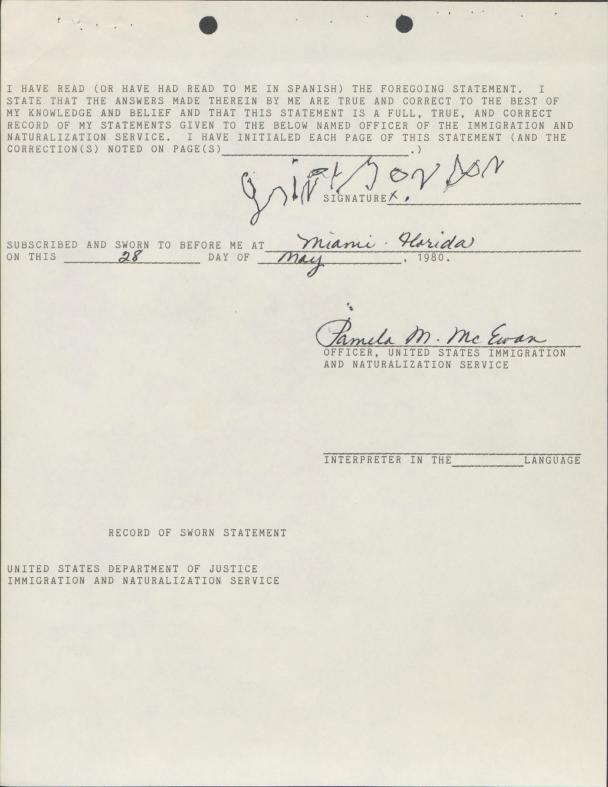 I HAVE READ (OR HAVE HAD READ TO ME IN SPANISH) THE FOREGOING STATEMENT. I
STATE THAT THE ANSWERS MADE THEREIN BY ME ARE TRUE AND CORRECT TO THE BEST OF
MY KNOWLEDGE AND BELIEF AND THAT THIS STATEMENT IS A FULL, TRUE, AND CORRECT
RECORD OF MY STATEMENTS GIVEN TO THE BELOW NAMED OFFICER OF THE IMMIGRATION AND
NATURALIZATION SERVICE. I HAVE INITIALED EACH PAGE OF THIS STATEMENT (AND THE
CORRECTION(S) NOTED ON PAGE(S)____________________.)
SIGNATURE X.
SUBSCRIBED AND SWORN TO BEFORE ME AT Miami - Florida
ON THIS 28 DAY OF May, 1980.
Pamela M. McEwan
OFFICER, UNITED STATES IMMIGRATION
AND NATURALIZATION SERVICE
INTERPRETER IN THE________LANGUAGE
RECORD OF SWORN STATEMENT
UNITED STATES DEPARTMENT OF JUSTICE
IMMIGRATION AND NATURALIZATION SERVICE